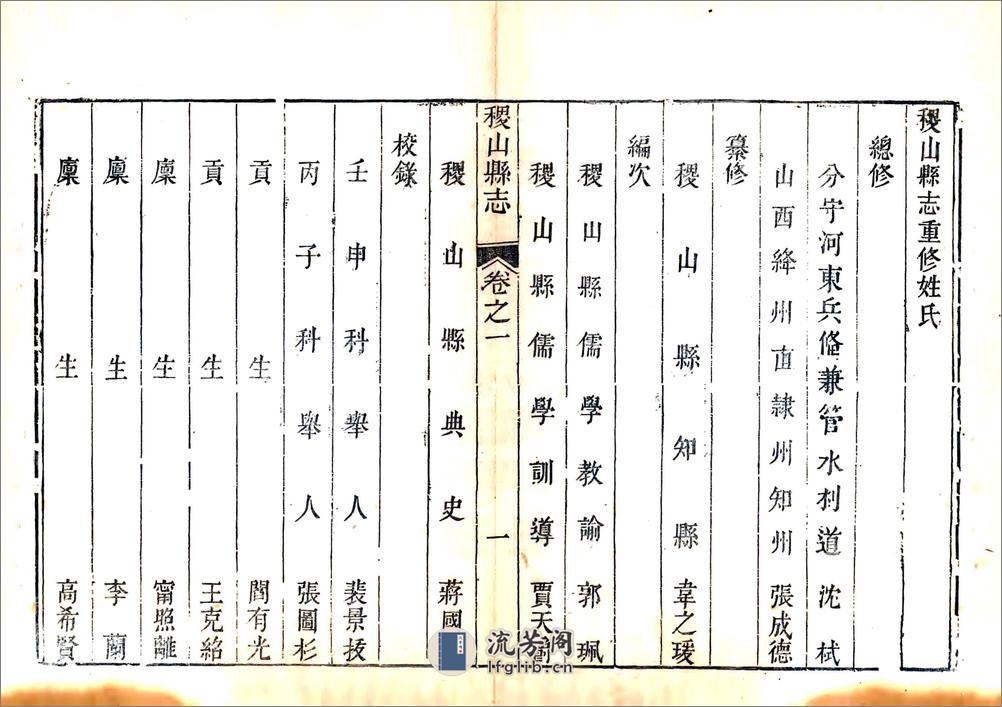 稷山縣志重修姓氏
總修
分守河東兵俻兼管水利道 沈栻
山西絳州直隷州知州 張成德
纂修
稷山縣知縣 韋之瑗
編次
稷山縣儒學教諭 郭珮
稷山縣儒學訓導 賈天
稷山縣志 卷之一 一
稷山縣典史 蔣國
校錄
壬申科舉人 裴景
丙子科舉人 張圖杉
貢生 閻有光
貢生 王克紹
廩生 甯照離
廩生 李蘭
廩生 高希賢
流芳阁
lfglib.cn